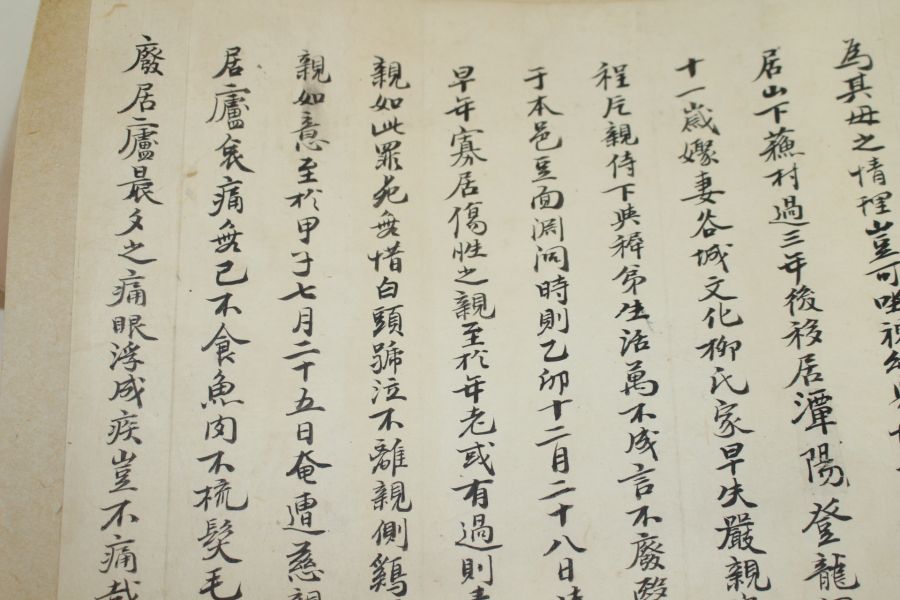 為其母之情理豈可坐視
居山下蘓村過三年後移居潭陽登龍
十一歲娶妻谷城文化柳氏家早失嚴親
程斥親侍下與稺弟生活萬不成言不廢
于本邑豆面洞時則乙卯十二月二十八日
早年寡居傷性之親至於年老或有過則
親如此罪死無惜白頭號泣不離親側鷄
親如意至於甲子七月二十五日奄遭慈親
居廬哀痛無已不食魚肉不梳髮毛
廢居廬最多之痛眼浮成疾豈不痛哉